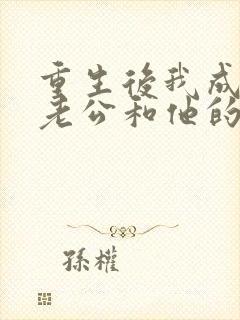 重生後我成
老公和他的
孫權